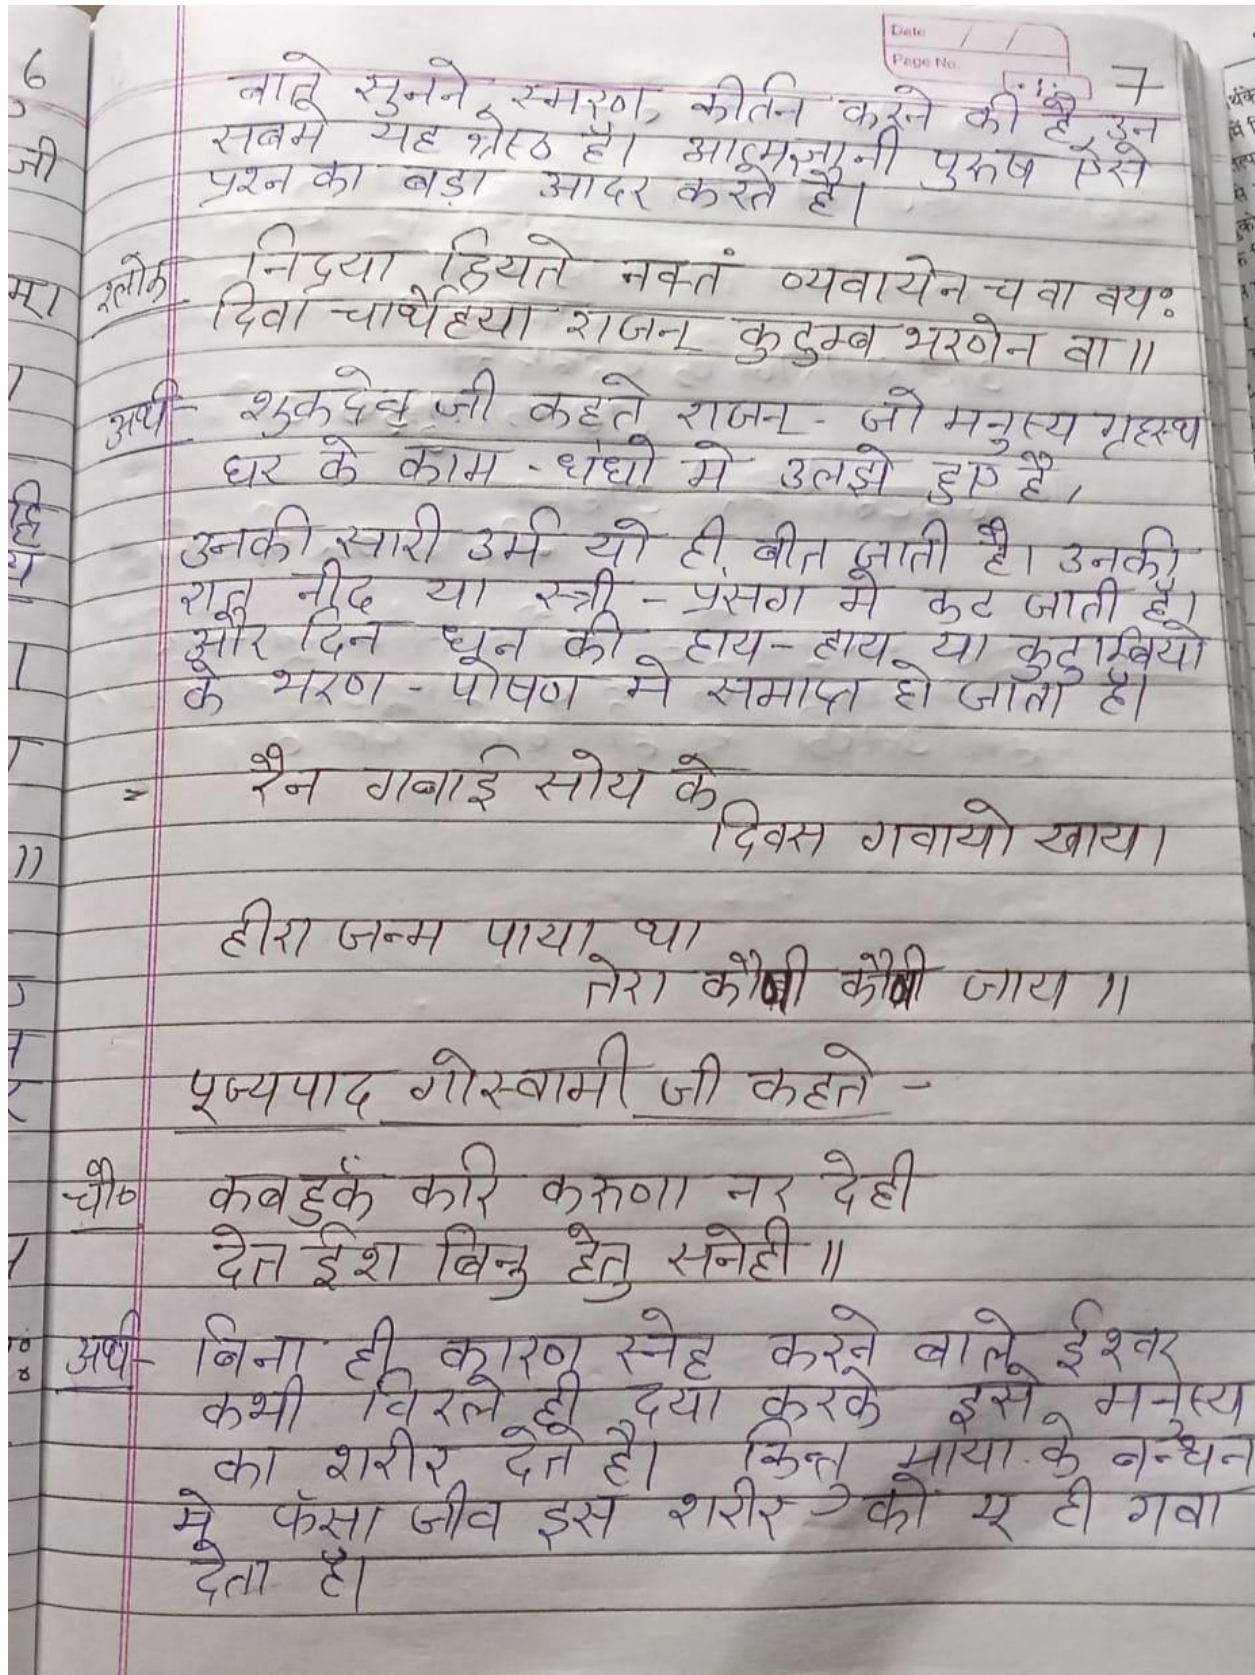 Date / /
Page No.
7
6
जी
बाते सुनने, स्मरण, कीर्तन करने की है, उन
सबमे यह श्रेष्ठ है। आत्मज्ञानी पुरुष ऐसे
प्रश्न का बड़ा आदर करते है।
श्लोक निद्रया ह्रियते नक्तं व्यवायेन च वा वयः
दिवा चार्थेहया राजन् कुटुम्ब भरणेन वा॥
अर्थ- शुकदेव जी कहते राजन् - जो मनुष्य गृहस्थ
घर के काम - धंधो मे उलझे हुए है,
उनकी सारी उर्म यो ही बीत जाती है। उनकी
रात नीद या स्त्री - प्रसंग मे कट जाती है।
और दिन धन की हाय - हाय या कुटुम्बियो
के भरण - पोषण मे समाप्त हो जाता है।
रैन गवाई सोय के
दिवस गवायो खाय।
हीरा जन्म पाया था
तेरा जाय॥
पूज्यपाद गोस्वामी जी कहते -
चौ० कबहुकँ करि करुणा नर देही
देत ईश बिनु हेतु सनेही॥
अर्थ- बिना ही कारण स्नेह करने बाले ईश्वर
कभी विरले ही दया करके इसे मनुष्य
का शरीर देते है। किन्तु माया के बन्धन
मे फँसा जीव इस शरीर को यू ही गवा
देता है।